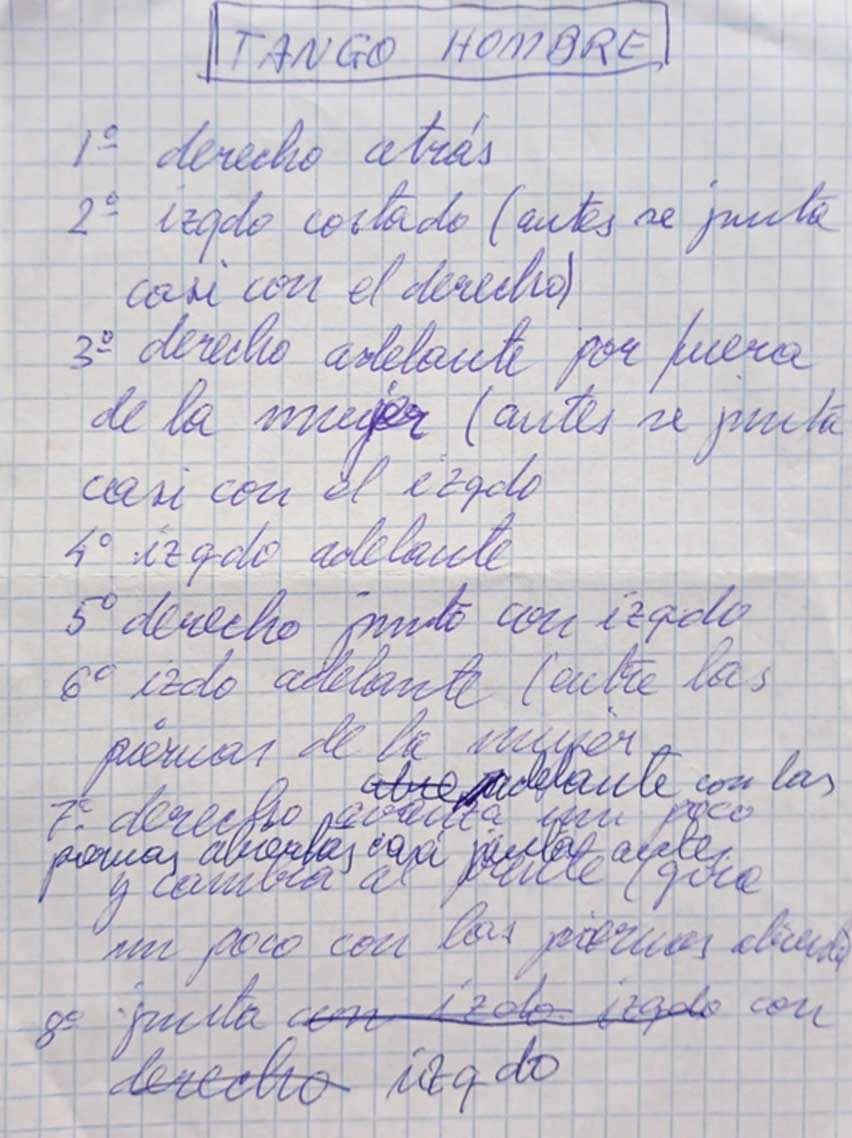 TANGO HOMBRE
1º derecho atrás
2º izqdo costado (antes se junta
casi con el derecho)
3º derecho adelante por fuera
de la mujer (antes se junta
casi con el izqdo
4º izqdo adelante
5º derecho junto con izqdo
6º izdo adelante (entre las
piernas de la mujer
abre adelante con las
7º derecho avanza un poco
piernas abiertas casi juntar antes
y cambia al frente (gira
un poco con las piernas
8º junta con izdo izqdo con
derecho izqdo